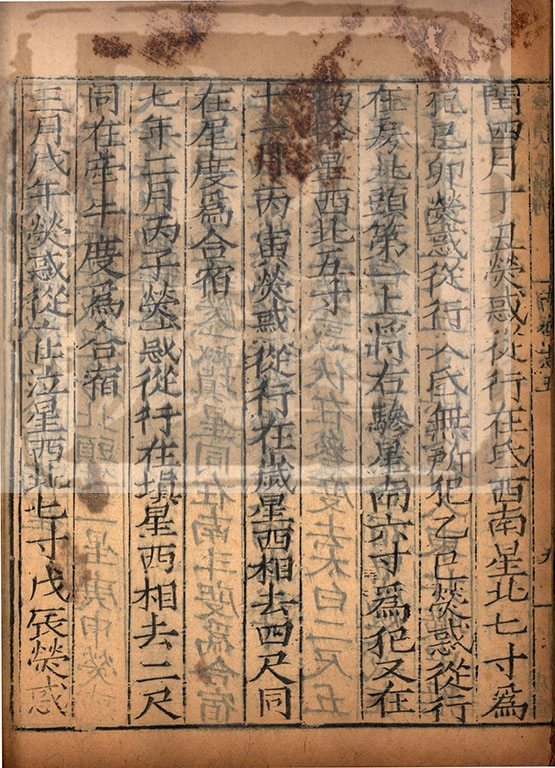 閏四月丁丑熒惑從行在氐西南星北七寸爲
犯己卯熒惑從行入氐無所犯乙巳熒惑從行
在房北頭第一上將右驂星南六寸爲犯又在
鈐星西北五寸
十一月丙寅熒惑從行在歲星西相去四尺同
在尾度爲合宿
七年二月丙子熒惑從行在塡星西相去二尺
同在牽牛度爲合宿
三月戊午熒惑從在泣星西北七寸戊辰熒惑